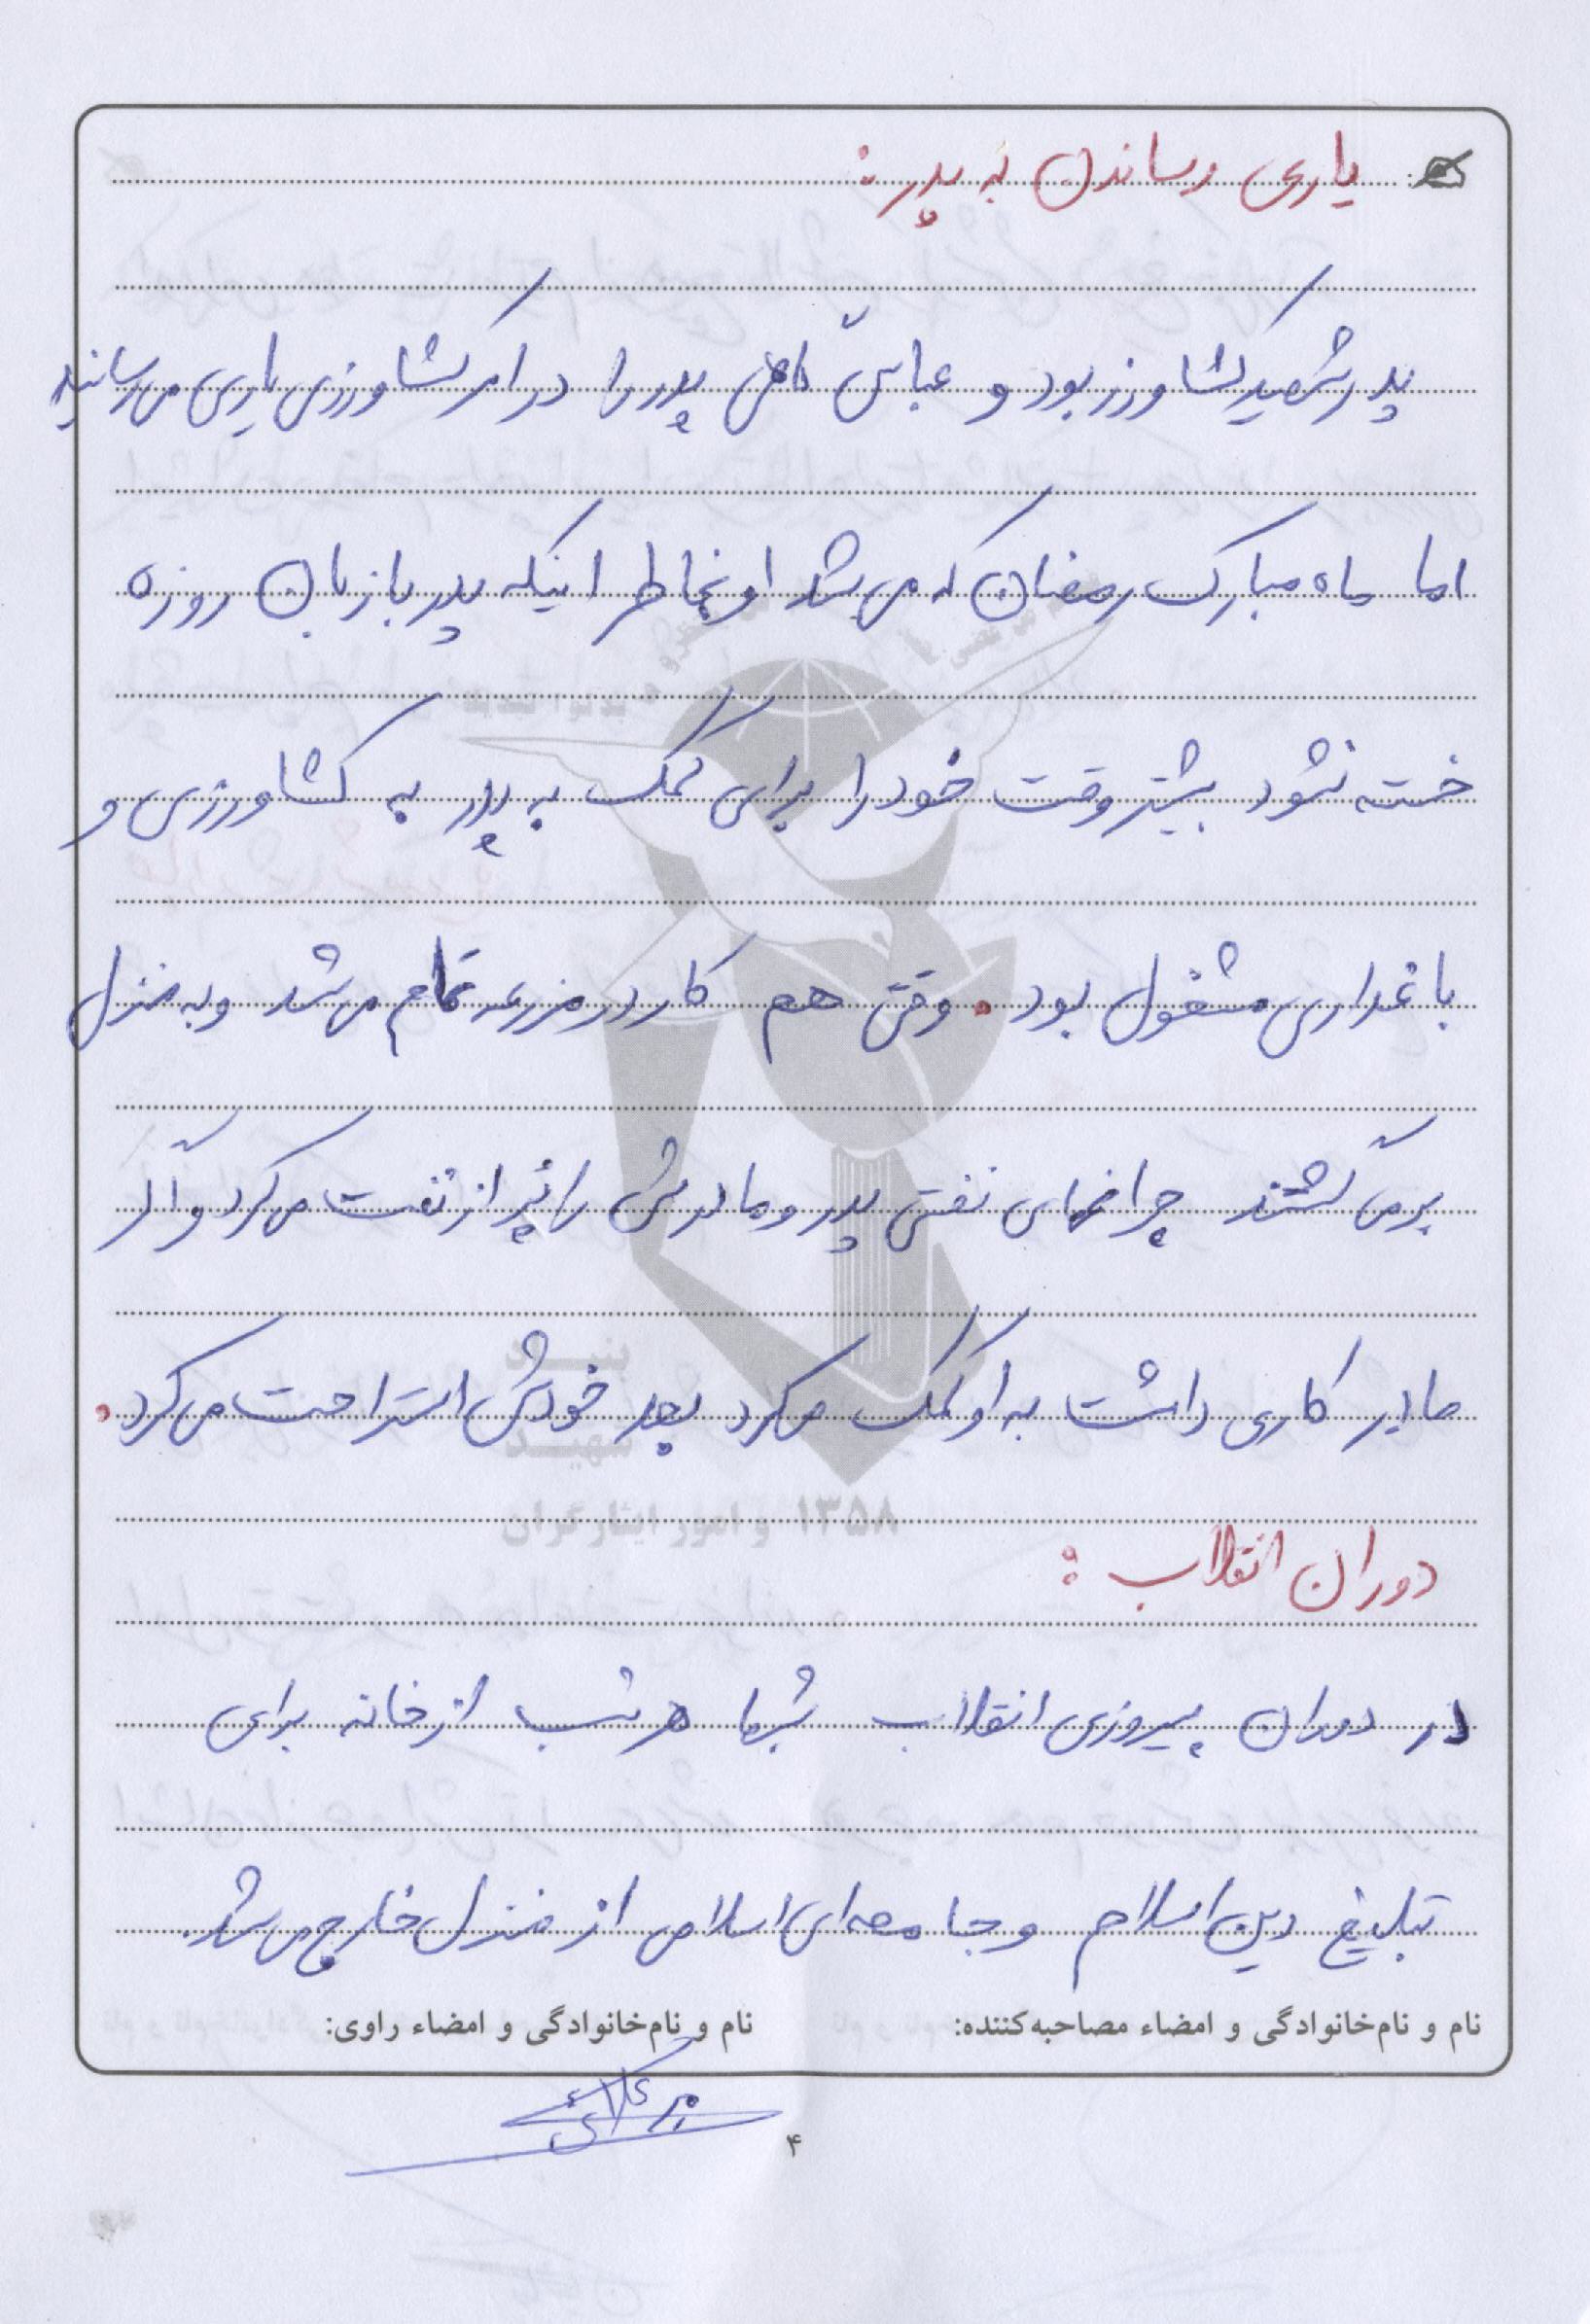 یاری رساندن به پدر:
پدر شهید کشاورز بود و عباس گاهی پدر را در امر کشاورزی یاری می رسانید
اما ماه مبارک رمضان که می شد او بخاطر اینکه پدر با زبان روزه
خسته نشود بیشتر وقت خود را برای کمک به پدر به کشاورزی و
باغداری مشغول بود. وقتی هم کار در مزرعه تمام می شد و به منزل
برمی گشتند چراغهای نفتی پدر و مادرش را پر از نفت می کرد و اگر
مادر کاری داشت به او کمک می کرد بعد خودش استراحت می کرد.
بنیاد
شهید
و امور ایثارگران ۱۳۵۸
دوران انقلاب:
در دوران پیروزی انقلاب شبها هر شب از خانه برای
تبلیغ دین اسلام و جامعه ای اسلامی از منزل خارج می شد.
نام و نام‌خانوادگی و امضاء مصاحبه‌کننده: نام و نام‌خانوادگی و امضاء راوی:
۴